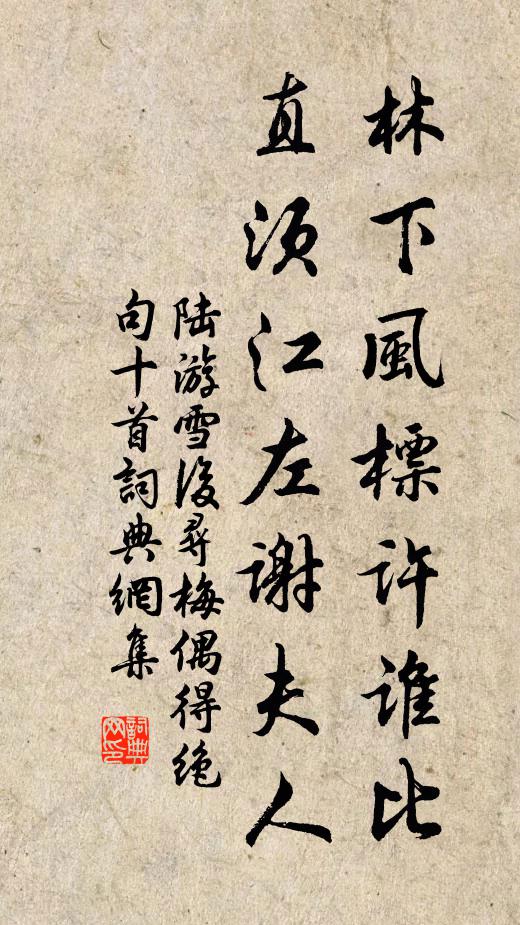 林下風標許誰比
直須江左謝夫人
陸游雪後尋梅偶得絶
句十首詞典網集
詞典網印